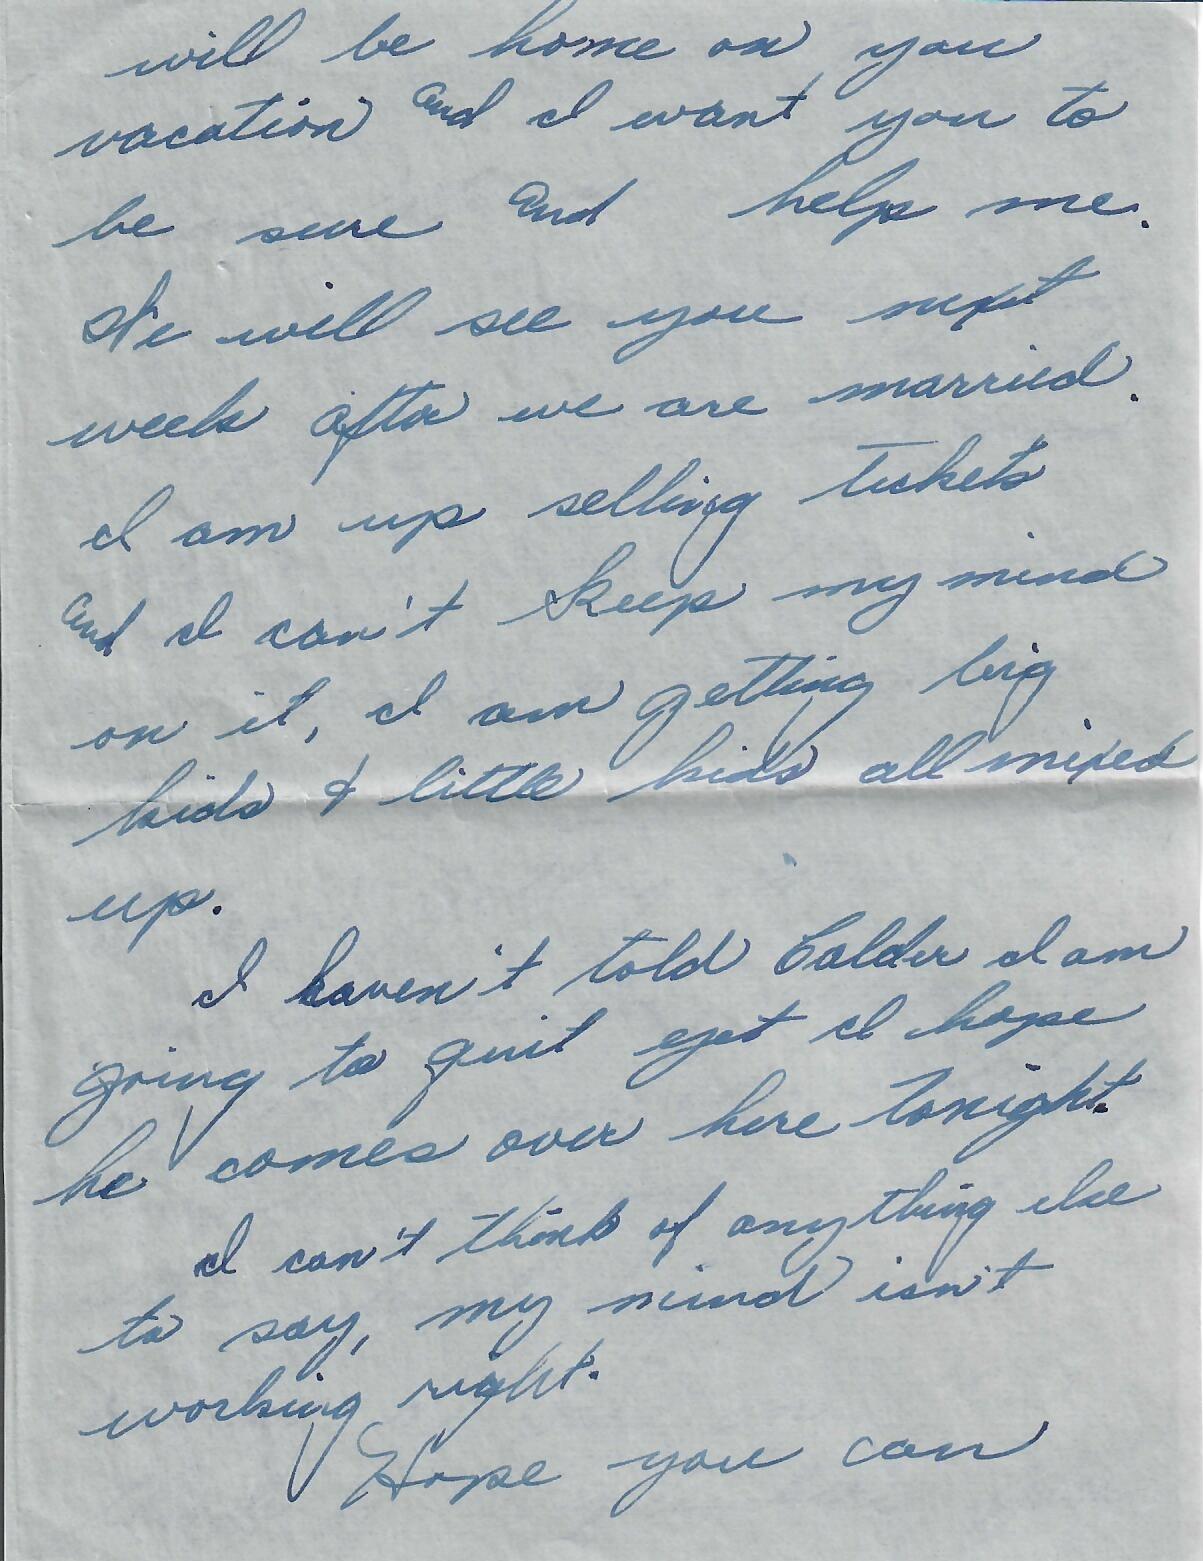 will be home on you
vacation and I want you to
be sure and help me.
We will see you next
week after we are married.
I am up selling tickets
and I can't keep my mind
on it, I am getting big
kids & little kids all mixed
up.
I haven't told Calder I am
going to quit yet I hope
he comes over here tonight.
I can't think of anything else
to say, my mind isn't
working right.
Hope you can